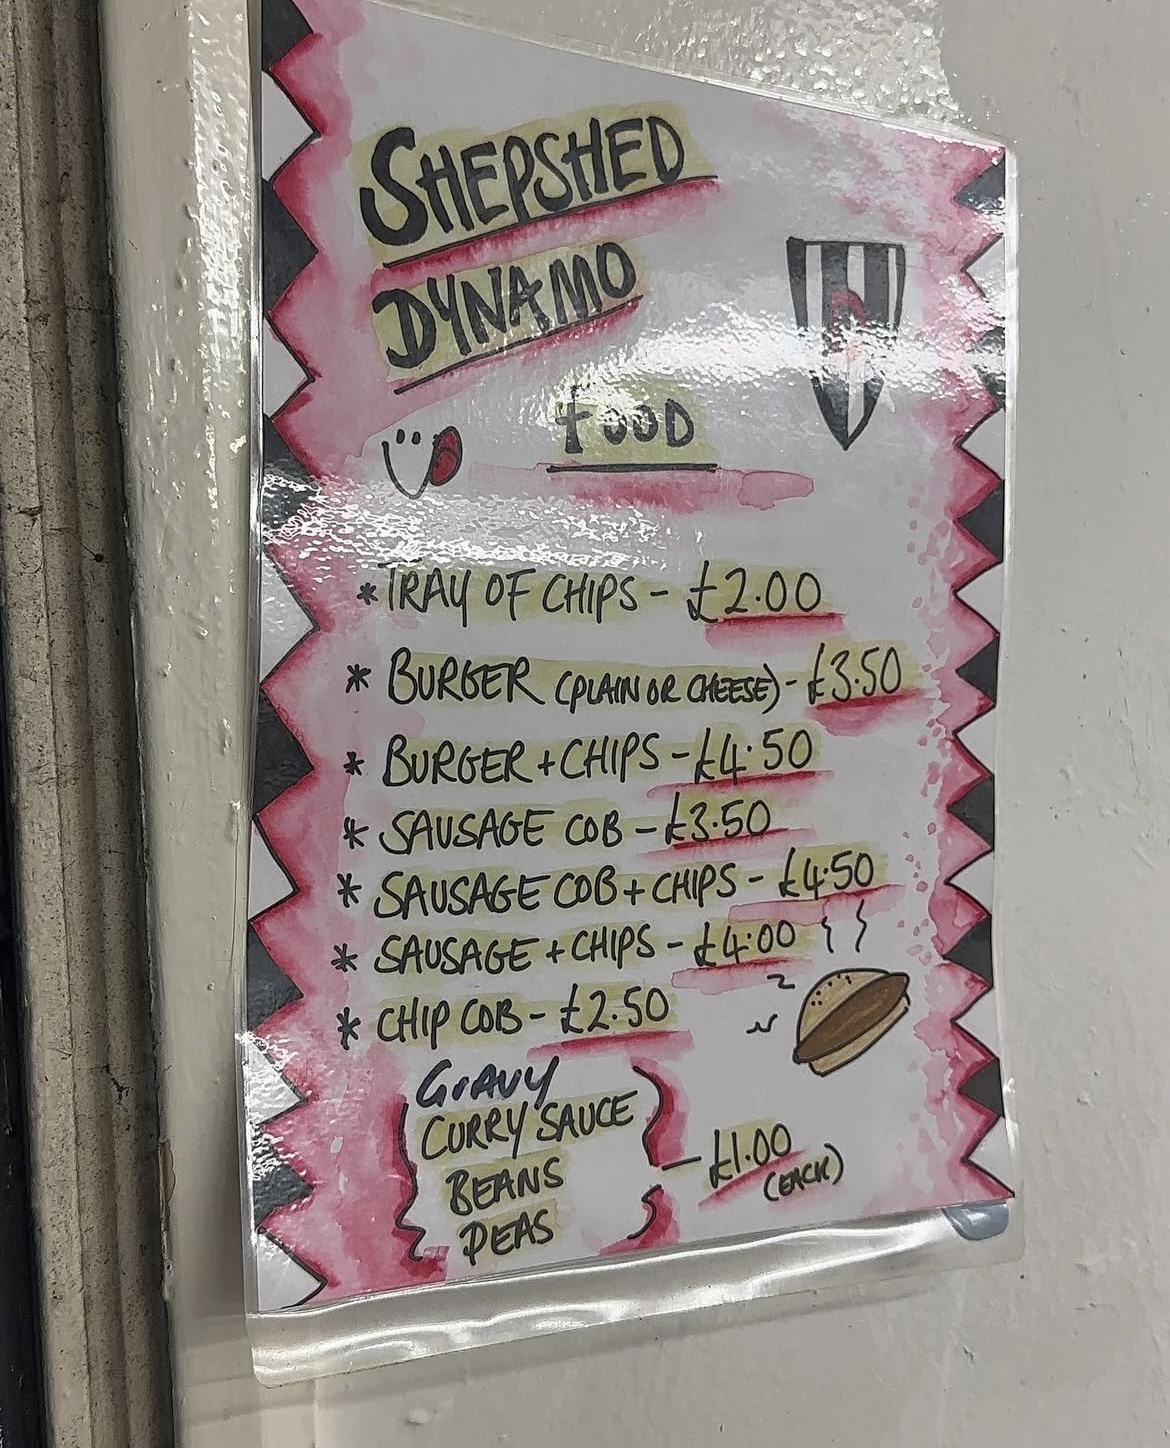 SHEPSHED
DYNAMO
FOOD
* TRAY OF CHIPS - £2.00
* BURGER (PLAIN OR CHEESE) - £3.50
* BURGER + CHIPS - £4.50
* SAUSAGE COB - £3.50
* SAUSAGE COB + CHIPS - £4.50
* SAUSAGE + CHIPS - £4.00
* CHIP COB - £2.50
GRAVY
CURRY SAUCE
BEANS
PEAS
- £1.00
(EACH)